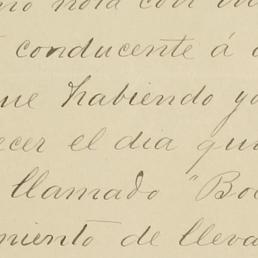 no nota con
conducente á
ue habiendo yo
ecer el dia qu
llamado "Bo
miento de lleva